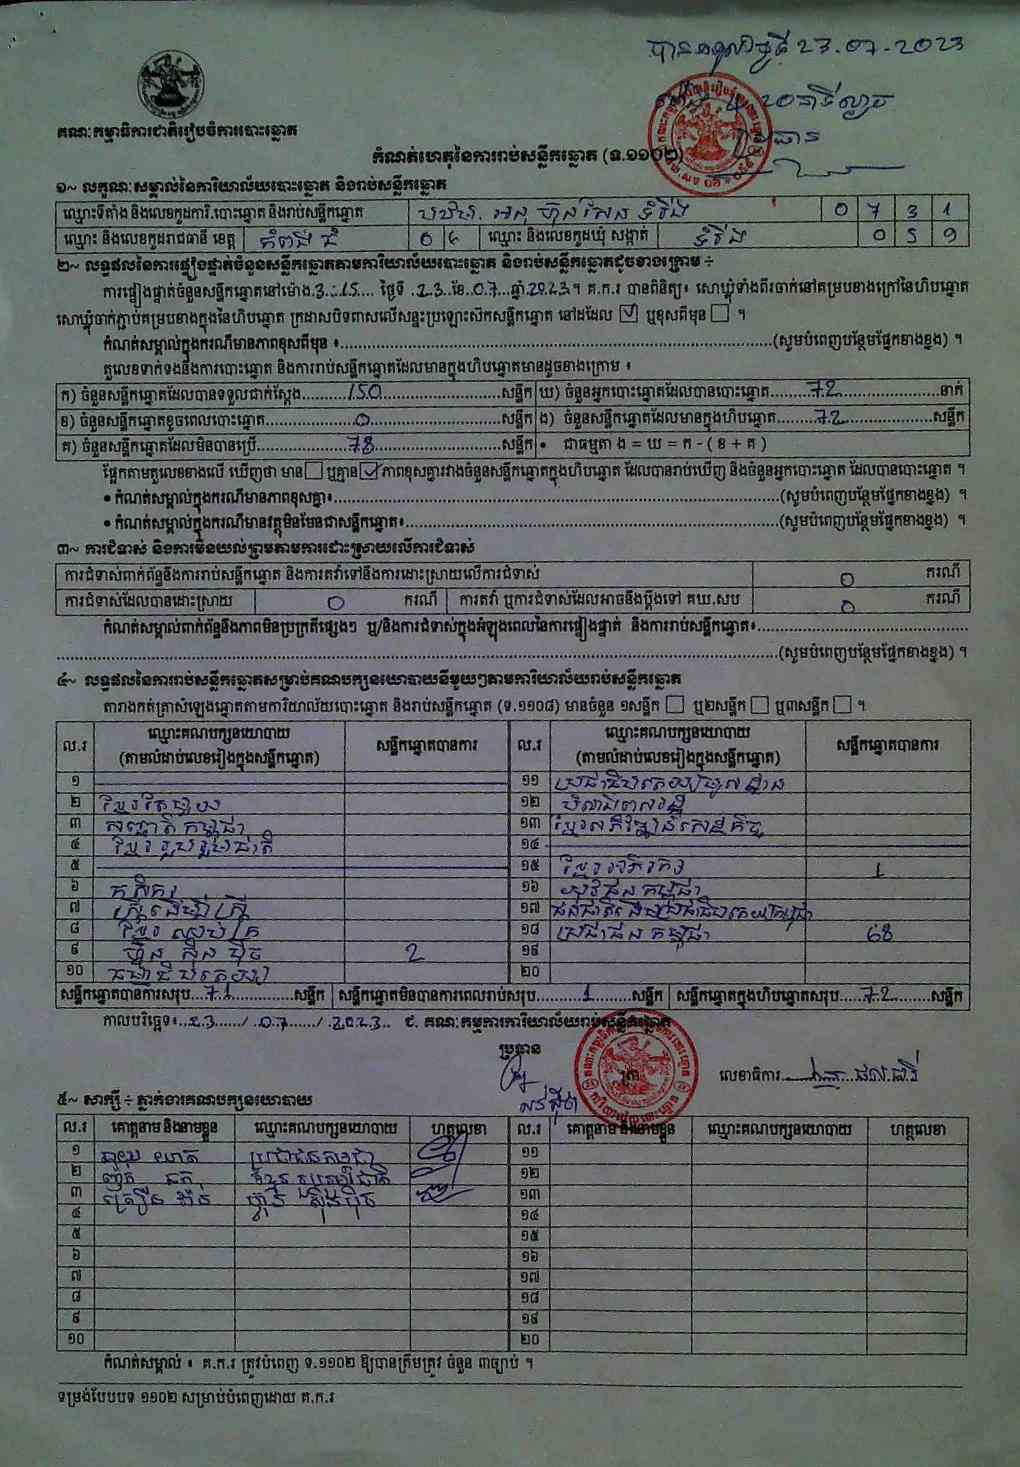 បានទទួលថ្ងៃទី 23.07.2023
20នាទីល្ងាច
ប្រធាន
គណៈកម្មាធិការជាតិរៀបចំការបោះឆ្នោត
កំណត់ហេតុនៃការរាប់សន្លឹកឆ្នោត (ទ.១១០២)
១~ លក្ខណៈសម្គាល់នៃការិយាល័យបោះឆ្នោត និងរាប់សន្លឹកឆ្នោត
ឈ្មោះទីតាំង និងលេខកូដការិ.បោះឆ្នោត និងរាប់សន្លឹកឆ្នោត ហ៊ុន សែន ទំរីង 0 7 3 1
ឈ្មោះ និងលេខកូដរាជធានី ខេត្ត កំពង់ធំ 0 6 ឈ្មោះ និងលេខកូដឃុំ សង្កាត់ ទំរីង 0 5 9
២~ លទ្ធផលនៃការផ្ទៀងផ្ទាត់ចំនួនសន្លឹកឆ្នោតតាមការិយាល័យបោះឆ្នោត និងរាប់សន្លឹកឆ្នោតដូចខាងក្រោម ÷
ការផ្ទៀងផ្ទាត់ចំនួនសន្លឹកឆ្នោតនៅម៉ោង 3:15 ថ្ងៃទី 23 ខែ 07 ឆ្នាំ 2023។ គ.ក.រ បានពិនិត្យ៖ សោឃ្លុំទាំងពីរចាក់នៅគម្របខាងក្រៅនៃហិបឆ្នោត
សោឃ្លុំចាក់ភ្ជាប់គម្របខាងក្នុងនៃហិបឆ្នោត ក្រដាសបិទពាសលើសន្ទះប្រឡោះសឹកសន្លឹកឆ្នោត នៅដដែល ☑ ឬខុសពីមុន ☐ ។
កំណត់សម្គាល់ក្នុងករណីមានភាពខុសពីមុន ៖ (សូមបំពេញបន្ថែមផ្នែកខាងខ្នង) ។
តួលេខទាក់ទងនឹងការបោះឆ្នោត និងការរាប់សន្លឹកឆ្នោតដែលមានក្នុងហិបឆ្នោតមានដូចខាងក្រោម ៖
ក) ចំនួនសន្លឹកឆ្នោតដែលបានទទួលជាក់ស្តែង 150 សន្លឹក ឃ) ចំនួនអ្នកបោះឆ្នោតដែលបានបោះឆ្នោត 72 នាក់
ខ) ចំនួនសន្លឹកឆ្នោតខូចពេលបោះឆ្នោត 0 សន្លឹក ង) ចំនួនសន្លឹកឆ្នោតដែលមានក្នុងហិបឆ្នោត 72 សន្លឹក
គ) ចំនួនសន្លឹកឆ្នោតដែលមិនបានប្រើ 78 សន្លឹក • ជាធម្មតា ង = ឃ = ក - ( ខ + គ )
ផ្អែកតាមតួលេខខាងលើ ឃើញថា មាន ☐ ឬគ្មាន ☑ ភាពខុសគ្នារវាងចំនួនសន្លឹកឆ្នោតក្នុងហិបឆ្នោត ដែលបានរាប់ឃើញ និងចំនួនអ្នកបោះឆ្នោត ដែលបានបោះឆ្នោត ។
• កំណត់សម្គាល់ក្នុងករណីមានភាពខុសគ្នា៖ (សូមបំពេញបន្ថែមផ្នែកខាងខ្នង) ។
• កំណត់សម្គាល់ក្នុងករណីមានវត្ថុមិនមែនជាសន្លឹកឆ្នោត៖ (សូមបំពេញបន្ថែមផ្នែកខាងខ្នង) ។
៣~ ការជំទាស់ និងការមិនយល់ព្រមតាមការដោះស្រាយលើការជំទាស់
ការជំទាស់ពាក់ព័ន្ធនឹងការរាប់សន្លឹកឆ្នោត និងការតវ៉ាទៅនឹងការដោះស្រាយលើការជំទាស់ 0 ករណី
ការជំទាស់ដែលបានដោះស្រាយ 0 ករណី ការតវ៉ា ឬការជំទាស់ដែលអាចនឹងប្តឹងទៅ គឃ.សប 0 ករណី
កំណត់សម្គាល់ពាក់ព័ន្ធនឹងភាពមិនប្រក្រតីផ្សេងៗ ឬ/និងការជំទាស់ក្នុងអំឡុងពេលនៃការផ្ទៀងផ្ទាត់ និងការរាប់សន្លឹកឆ្នោត៖
(សូមបំពេញបន្ថែមផ្នែកខាងខ្នង) ។
៤~ លទ្ធផលនៃការរាប់សន្លឹកឆ្នោតសម្រាប់គណបក្សនយោបាយនីមួយៗតាមការិយាល័យរាប់សន្លឹកឆ្នោត
តារាងកត់ត្រាសំឡេងឆ្នោតតាមការិយាល័យបោះឆ្នោត និងរាប់សន្លឹកឆ្នោត (ទ.១១០៨) មានចំនួន ១សន្លឹក ☐ ឬ២សន្លឹក ☐ ឬ៣សន្លឹក ☐ ។
ល.រ ឈ្មោះគណបក្សនយោបាយ (តាមលំដាប់លេខរៀងក្នុងសន្លឹកឆ្នោត) សន្លឹកឆ្នោតបានការ ល.រ ឈ្មោះគណបក្សនយោបាយ (តាមលំដាប់លេខរៀងក្នុងសន្លឹកឆ្នោត) សន្លឹកឆ្នោតបានការ
១ ១១ ប្រជាធិបតេយ្យមូលដ្ឋាន
២ ខ្មែរតែមួយ ១២
៣ សញ្ជាតិកម្ពុជា ១៣ ខ្មែរអភិវឌ្ឍន៍សេដ្ឋកិច្ច
៤ ខ្មែររួបរួមជាតិ ១៤
៥ ១៥ ខ្មែរអភិរក្ស 1
៦ កសិករ ១៦ យុវជនកម្ពុជា
៧ ស្ត្រីដើម្បីស្ត្រី ១៧
៨ ខ្មែរឈប់ក្រ ១៨ ប្រជាជនកម្ពុជា 68
៩ ហ៊្វុនស៊ិនប៉ិច 2 ១៩
១០ ធម្មាធិបតេយ្យ ២០
សន្លឹកឆ្នោតបានការសរុប 71 សន្លឹក សន្លឹកឆ្នោតមិនបានការពេលរាប់សរុប 1 សន្លឹក សន្លឹកឆ្នោតក្នុងហិបឆ្នោតសរុប 72 សន្លឹក
កាលបរិច្ឆេទ៖ 23 / 07 / 2023 ជ. គណៈកម្មការការិយាល័យរាប់សន្លឹកឆ្នោត
ប្រធាន
ត្រា
លេខាធិការ
៥~ សាក្សី ÷ ភ្នាក់ងារគណបក្សនយោបាយ
ល.រ គោត្តនាម និងនាមខ្លួន ឈ្មោះគណបក្សនយោបាយ ហត្ថលេខា ល.រ គោត្តនាម និងនាមខ្លួន ឈ្មោះគណបក្សនយោបាយ ហត្ថលេខា
១ ប្រជាជនកម្ពុជា ១១
២ ខ្មែររួបរួមជាតិ ១២
៣ ហ៊្វុនស៊ិនប៉ិច ១៣
៤ ១៤
៥ ១៥
៦ ១៦
៧ ១៧
៨ ១៨
៩ ១៩
១០ ២០
កំណត់សម្គាល់ ៖ គ.ក.រ ត្រូវបំពេញ ទ.១១០២ ឱ្យបានត្រឹមត្រូវ ចំនួន ៣ច្បាប់ ។
ទម្រង់បែបបទ ១១០២ សម្រាប់បំពេញដោយ គ.ក.រ